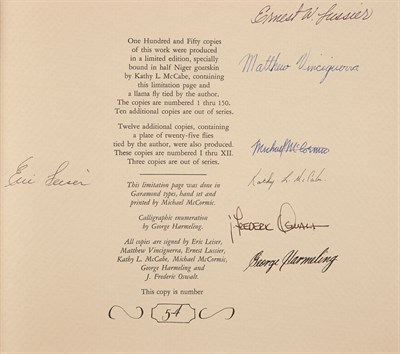 Ernest W. Lussier
One Hundred and Fifty copies
of this work were produced
in a limited edition, specially
bound in half Niger goatskin
by Kathy L McCabe, containing
this limitation page and
a llama fly tied by the author.
The copies are numbered 1 thru 150.
Ten additional copies are out of series.
Matthew Vinciguerra
Twelve additional copies, containing
a plate of twenty-five flies
tied by the author, were also produced.
These copies are numbered I thru XII.
Three copies are out of series.
Michael McCormic
Eric Leiser
Kathy L McCabe
This limitation page was done in
Garamond types, hand set and
printed by Michael McCormic.
Calligraphic enumeration
by George Harmeling.
J Frederic Oswalt
All copies are signed by Eric Leiser,
Matthew Vinciguerra, Ernest Lussier,
Kathy L. McCabe, Michael McCormic,
George Harmeling and
J. Frederic Oswalt.
George Harmeling
This copy is number
54